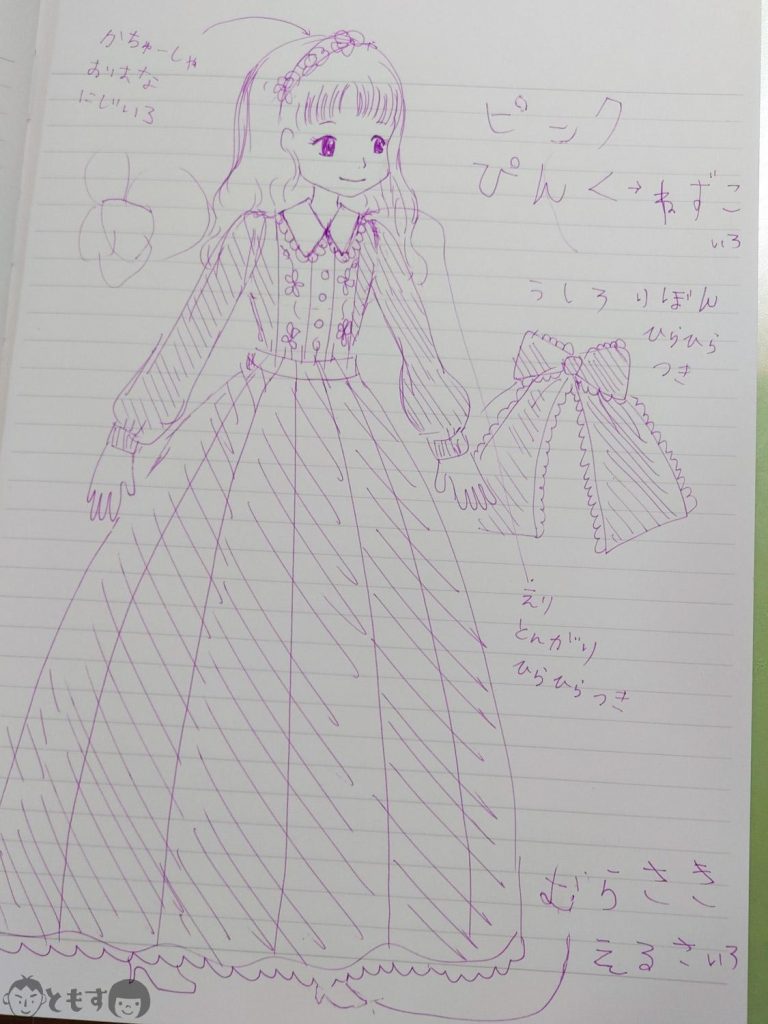 かちゅーしゃ
おはな
にじいろ
ピンク
ぴんく→ねずこ
いろ
うしろ りぼん
ひらひら
つき
えり
とんがり
ひらひらつき
むらさき
えるさいろ
ともす